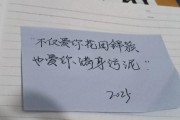 "不仅爱你花团锦簇
也爱你满身污泥"
2025